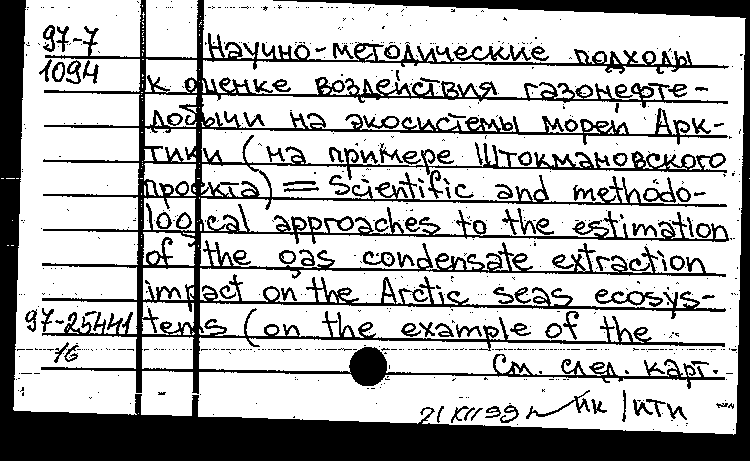 97-7 Научно-методические подходы
1094 к оценке воздействия газонефте-
добычи на экосистемы морей Арк-
тики (на примере Штокмановского
проекта) = Scientific and methodo-
logical approaches to the estimation
of the gas condensate extraction
impact on the Arctic seas ecosys-
97-25441 tems (on the example of the
16 См. след. карт.
21 XII 99 нк/пти